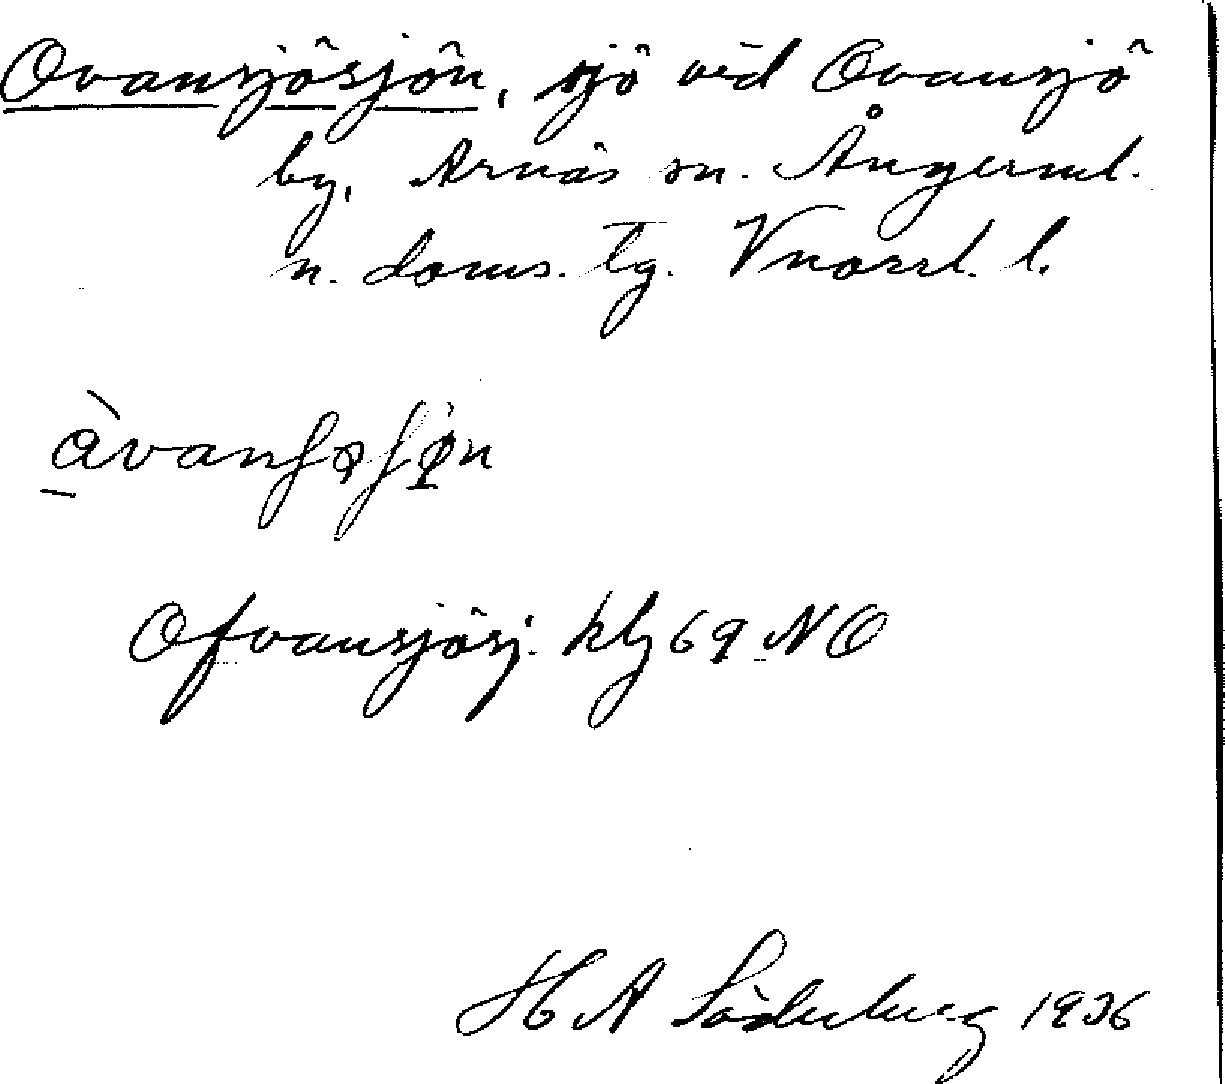 Ovansjösjön, sjö vid Ovansjö
by, Arnäs sn. Ångerml.
n. doms. tg. Vnorrl. l.
àvanʃøʃøn
Ofvansjösj. kbl 69 NO
H A Söderberg 1936